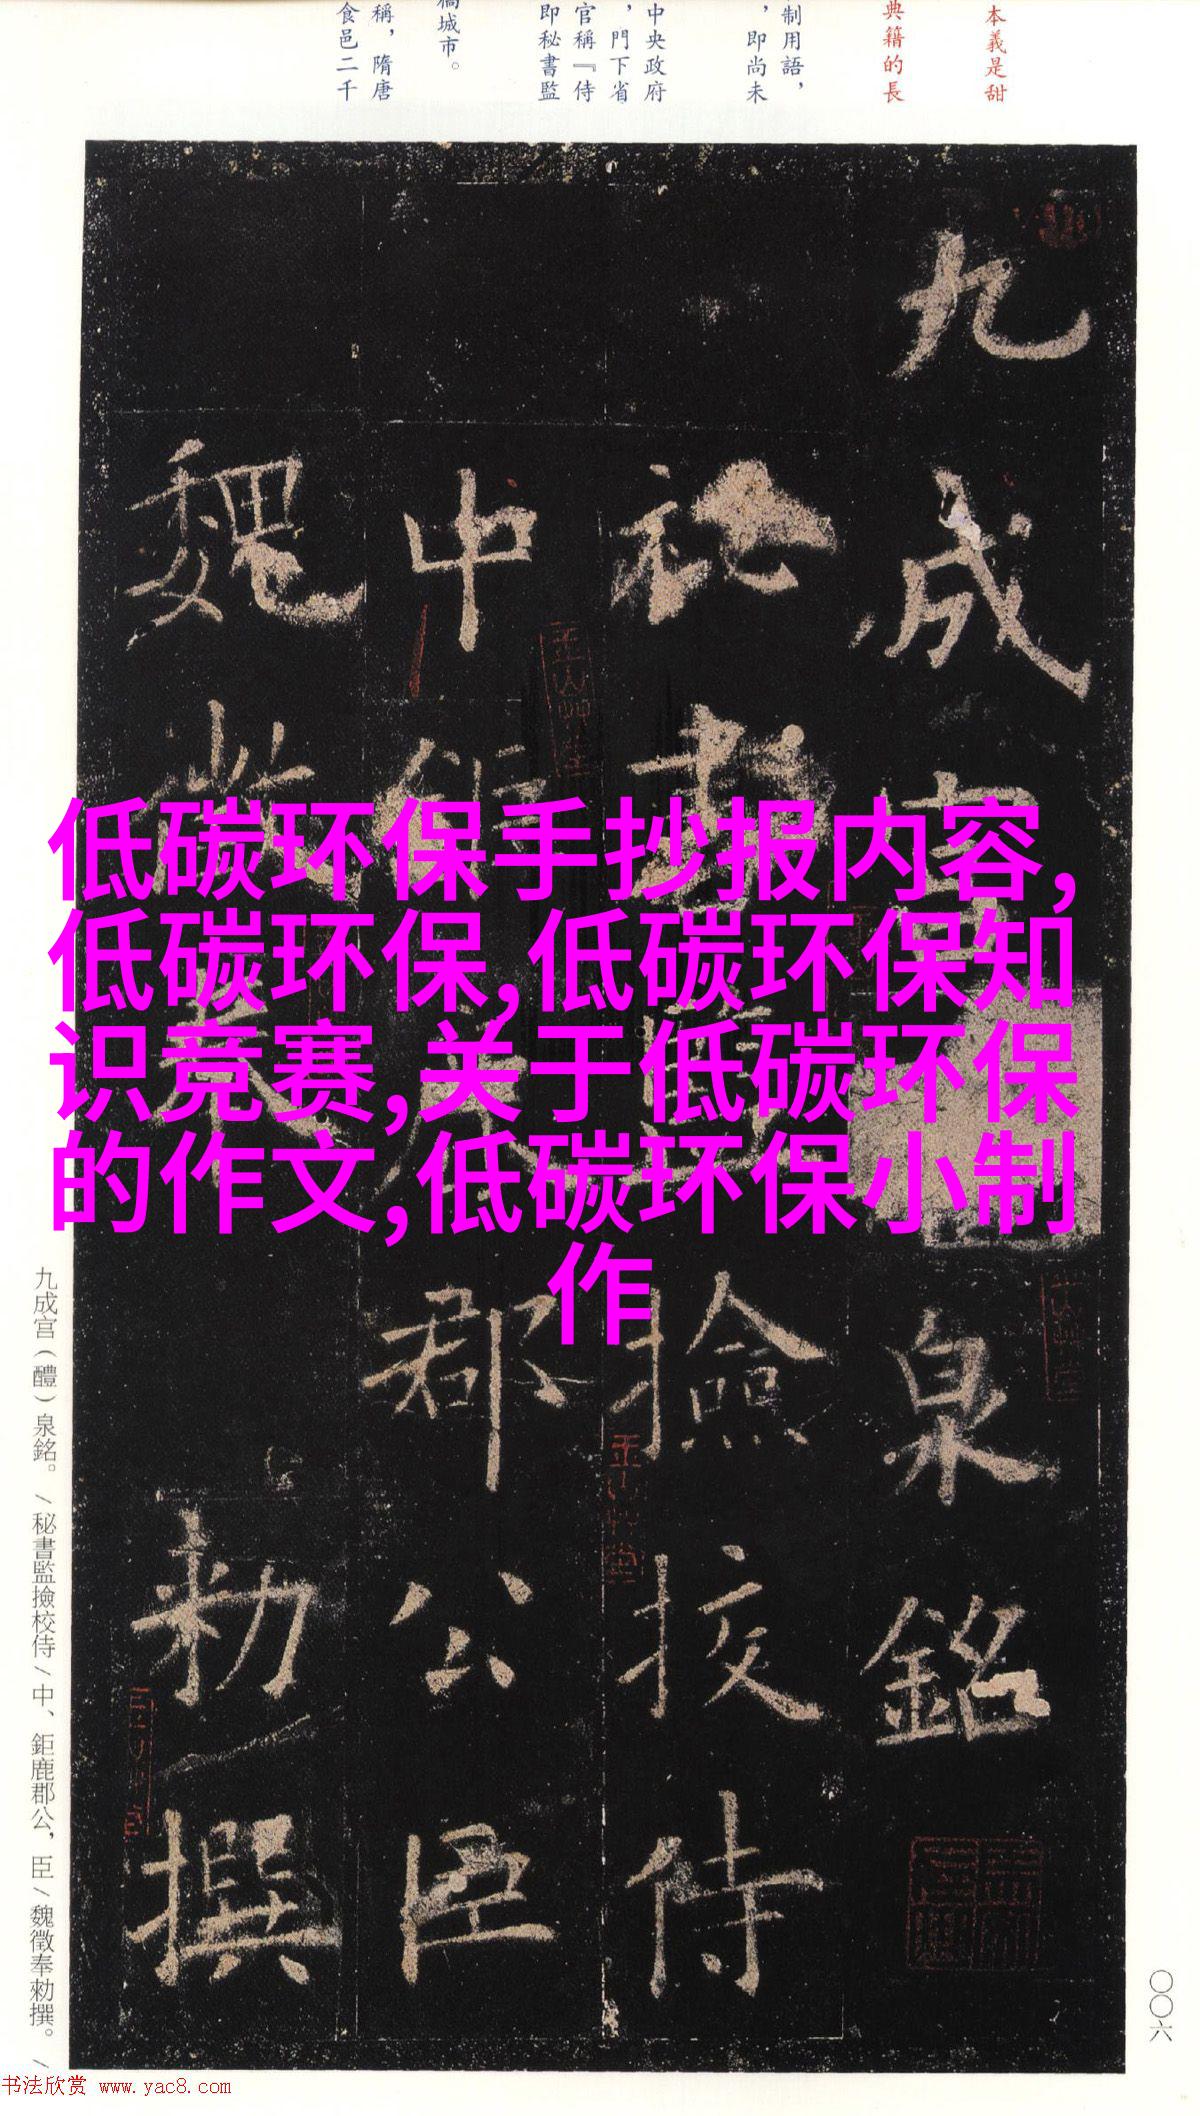 本義是甜
典籍的長
制用語，
，即尚未
中央政府
，門下省
官稱『侍
即秘書監
城市。
稱，隋唐
食邑二千
低碳环保手抄报内容,
低碳环保,低碳环保知
识竞赛,关于低碳环保
的作文,低碳环保小制
作
九成宮
泉銘
祕書監
撿挍侍
中
郡公臣
魏
勑撰
九成宮（醴）泉銘。/秘書監撿校侍/中、鉅鹿郡公，臣/魏徵奉勑撰。/
〇〇六
书法欣赏 www.yac8.com